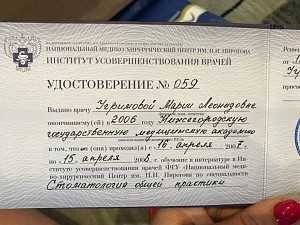 НАЦИОНАЛЬНЫЙ МЕДИКО-ХИРУРГИЧЕСКИЙ ЦЕНТР ИМ. Н.И. ПИРОГОВА
ИНСТИТУТ УСОВЕРШЕНСТВОВАНИЯ ВРАЧЕЙ
УДОСТОВЕРЕНИЕ № 059
Выдано врачу Уеримовой Марии Леонидовне
окончившему(ей) в 2006 Нижегородскую
государственную медицинскую академию
в том, что он(а) проходил(а) с 16 апреля 2007 г.
по 15 апреля 2008 г. обучение в интернатуре в Инсти-
туте усовершенствования врачей ФГУ «Национальный меди-
ко-хирургический Центр им. Н.И. Пирогова по специальности
Стоматология общей практики